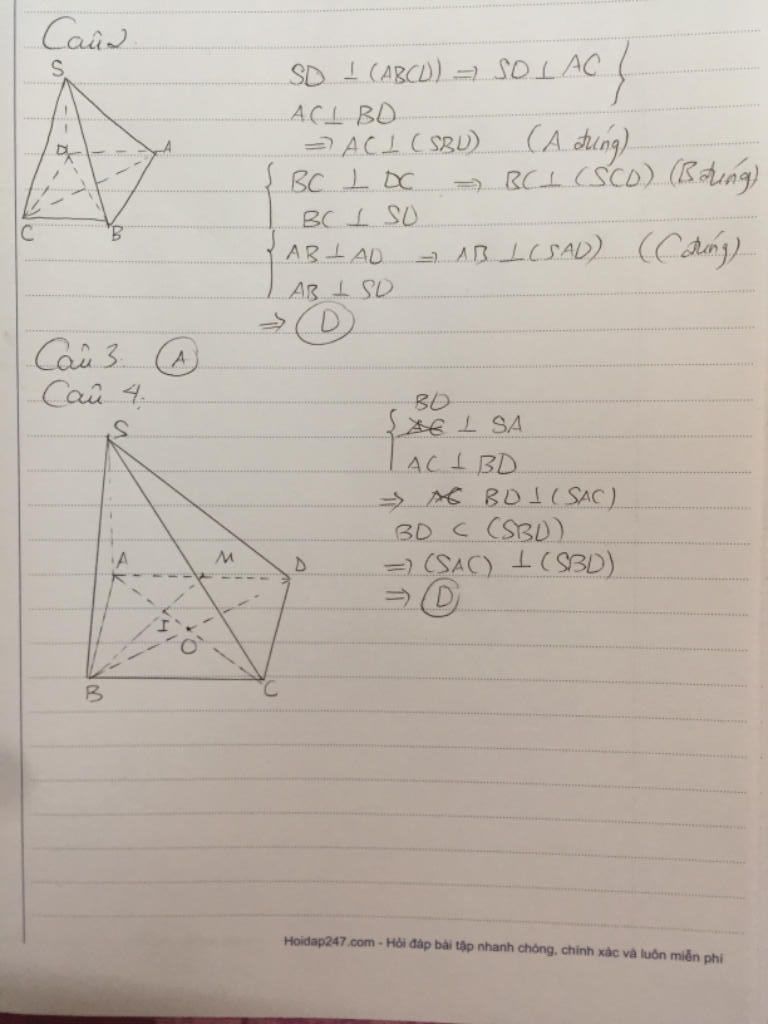 Câu 2
S
D
A
C
B
SD ⊥ (ABCD) => SD ⊥ AC }
AC ⊥ BD
=> AC ⊥ (SBD) (A đúng)
{ BC ⊥ DC => BC ⊥ (SCD) (B đúng)
BC ⊥ SD
{ AB ⊥ AD => AB ⊥ (SAD) (C đúng)
AB ⊥ SD
=> D
Câu 3. A
Câu 4.
S
A
M
D
I
O
B
C
BD
{ AC ⊥ SA
AC ⊥ BD
=> AC BD ⊥ (SAC)
BD ⊂ (SBD)
=> (SAC) ⊥ (SBD)
=> D
Hoidap247.com - Hỏi đáp bài tập nhanh chóng, chính xác và luôn miễn phí